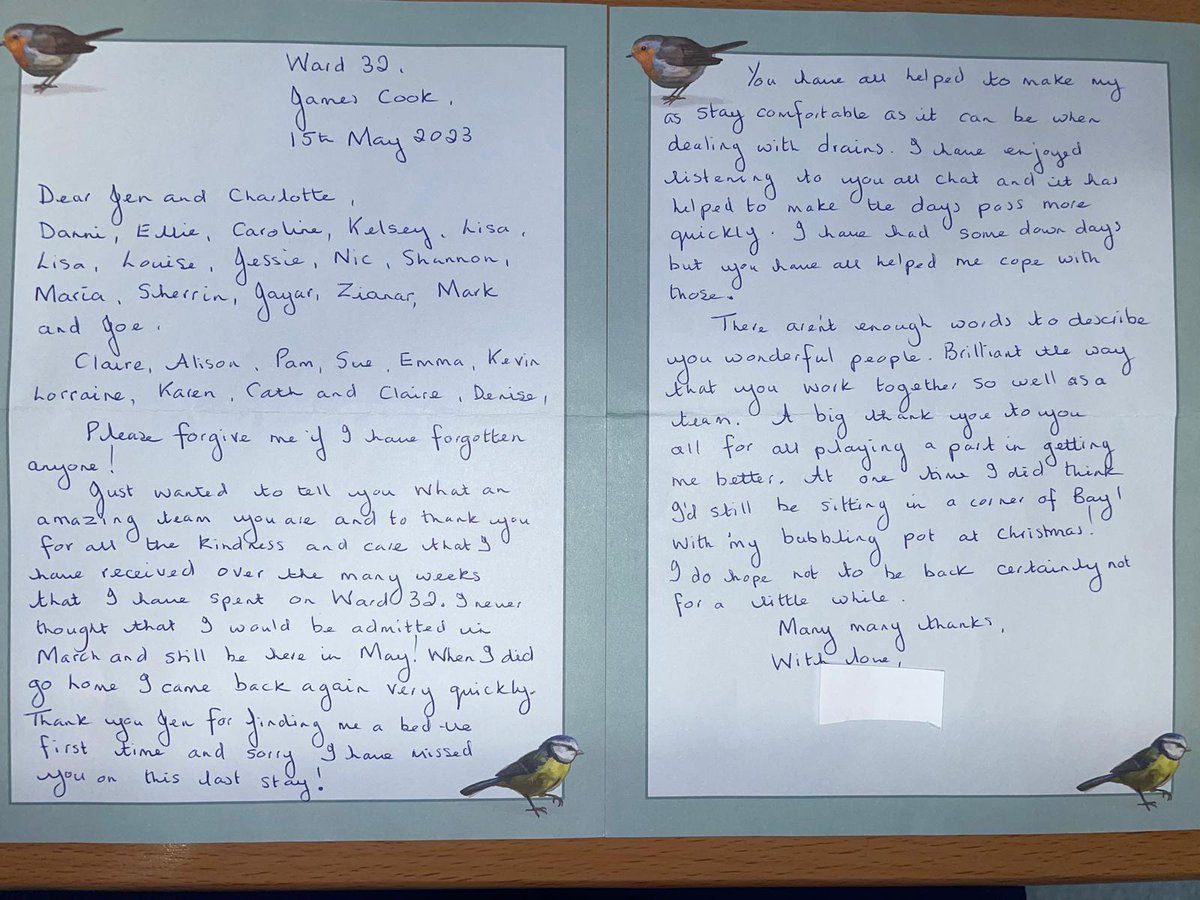 Ward 32.
James Cook.
15th May 2023
Dear Jen and Charlotte,
Danni, Ellie, Caroline, Kelsey, Lisa,
Lisa, Louise, Jessie, Nic, Shannon,
Maria, Sherrin, Jayar, Zianar, Mark
and Joe.
Claire, Alison, Pam, Sue, Emma, Kevin
Lorraine, Karen, Cath and Claire, Denise,
Please forgive me if I have forgotten
anyone!
Just wanted to tell you what an
amazing team you are and to thank you
for all the kindness and care that I
have received over the many weeks
that I have spent on Ward 32. I never
thought that I would be admitted in
March and still be here in May! When I did
go home I came back again very quickly.
Thank you Jen for finding me a bed the
first time and sorry I have missed
you on this last stay!
You have all helped to make my
as stay comfortable as it can be when
dealing with drains. I have enjoyed
listening to you all chat and it has
helped to make the days pass more
quickly. I have had some down days
but you have all helped me cope with
those.
There aren't enough words to describe
you wonderful people. Brilliant the way
that you work together so well as a
team. A big thank you to you
all for all playing a part in getting
me better. At one time I did think
I'd still be sitting in a corner of Bay 1
with my bubbling pot at Christmas!
I do hope not to be back certainly not
for a little while.
Many many thanks,
With love,